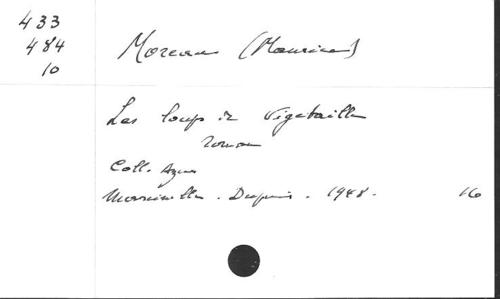 433
484
10
Moreau (Maurice)
Les loups de Vigetaille
roman
Coll. Azur
Marcinelle. Dupuis. 1948. 16